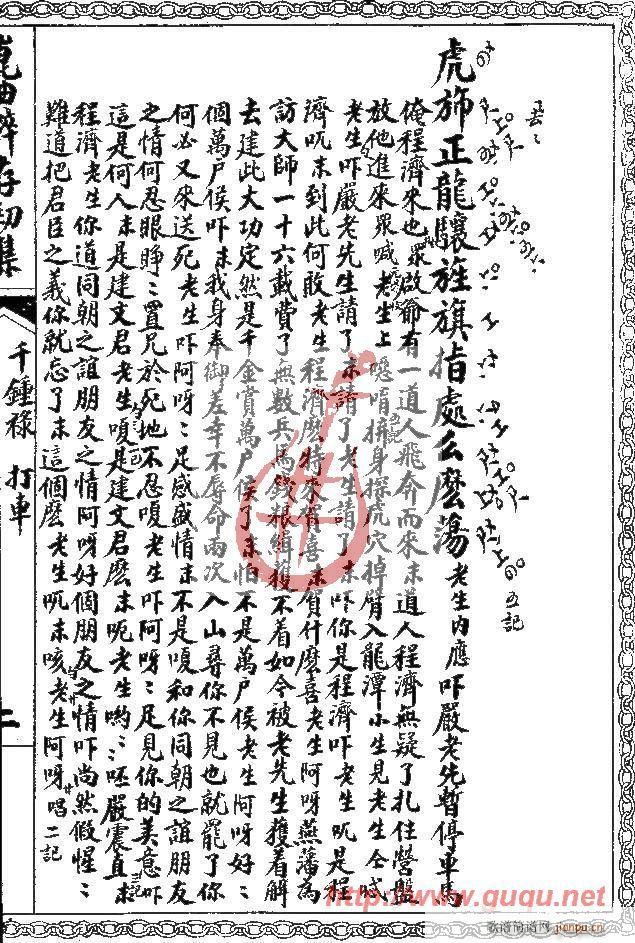 虎旆正龍驤旌旗指處么麽蕩 老生内應吓嚴老先暫停車馬
俺程濟來也衆啟爺有一道人飛奔而來末道人程濟無疑了扎住營盤
放他進來衆喊老生上 挤身探虎穴掉臂入龍潭小生見老生仝
老生吓嚴老先生請了末請了老生請了末吓你是程濟吓老生呒是程
濟呒末到此何敗老生程濟麽特來賀喜末賀什麽喜老生阿呀燕藩為
訪大師一十六載費了無數兵馬錢粮緝獲不着如今被老先生獲着解
去建此大功定然是千金賞萬户侯了末怕不是萬户侯老生阿呀好ミ
個萬户侯吓末我身奉御差幸不辱命兩次入山尋你不見也就罷了你
何必又來送死老生吓阿呀ミ足感盛情末不是嗄和你同朝之誼朋友
之情何忍眼睜ミ置兄於死地不忍嗄老生吓阿呀ミ足見你的美意吓
這是何人末是建文君老生嗄是建文君麽末呃老生喲ミ呸嚴震直末
程濟老生你道同朝之誼朋友之情阿呀好個朋友之情吓尚然假惺ミ
難道把君臣之義你就忘了末這個麽老生呒末咳老生阿呀 唱二記
五記
千鍾祿 打車
http://www.ququ.net
歌谱简谱网 jianpu.cn